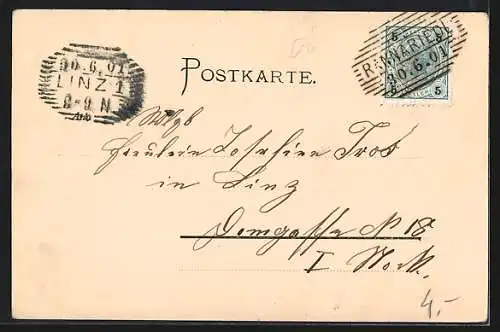 5 5
RANNARIEDL
30.6.01
5 5
30.6.01
LINZ 1
8-9 N
POSTKARTE.
Wlgb
Fräulein Josefine Trob
in Linz
Domgasse No 18
I Stock.
4.-